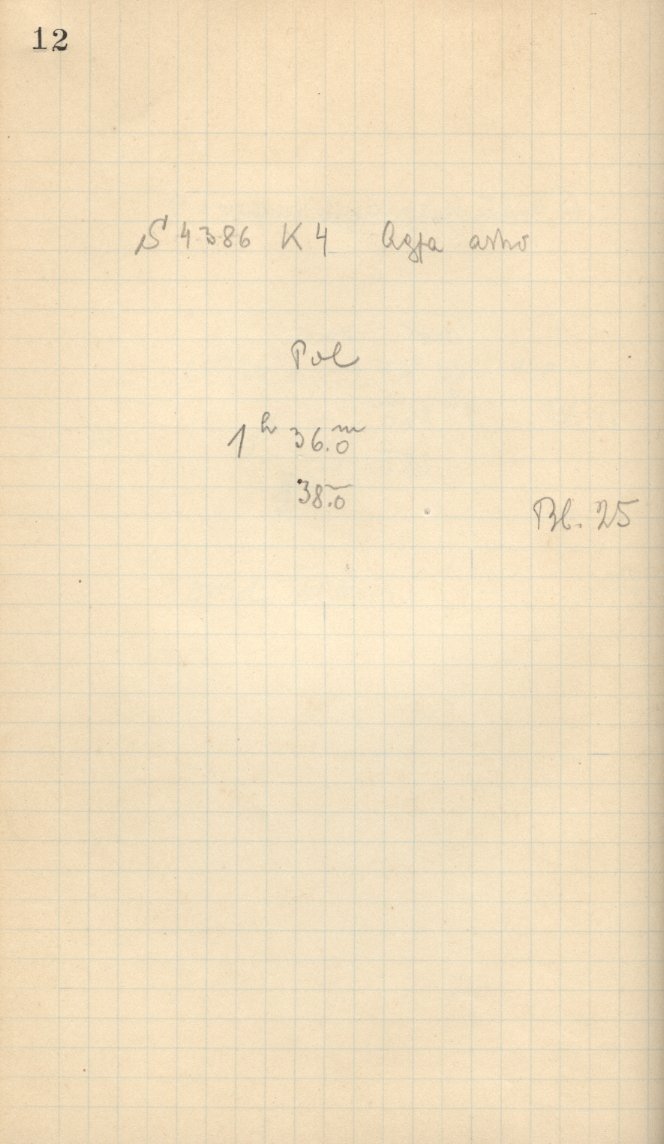 12
S 4386 K 4 Agfa astro
Pol
1ʰ 36.ᵐ0
38.0
Bl. 25